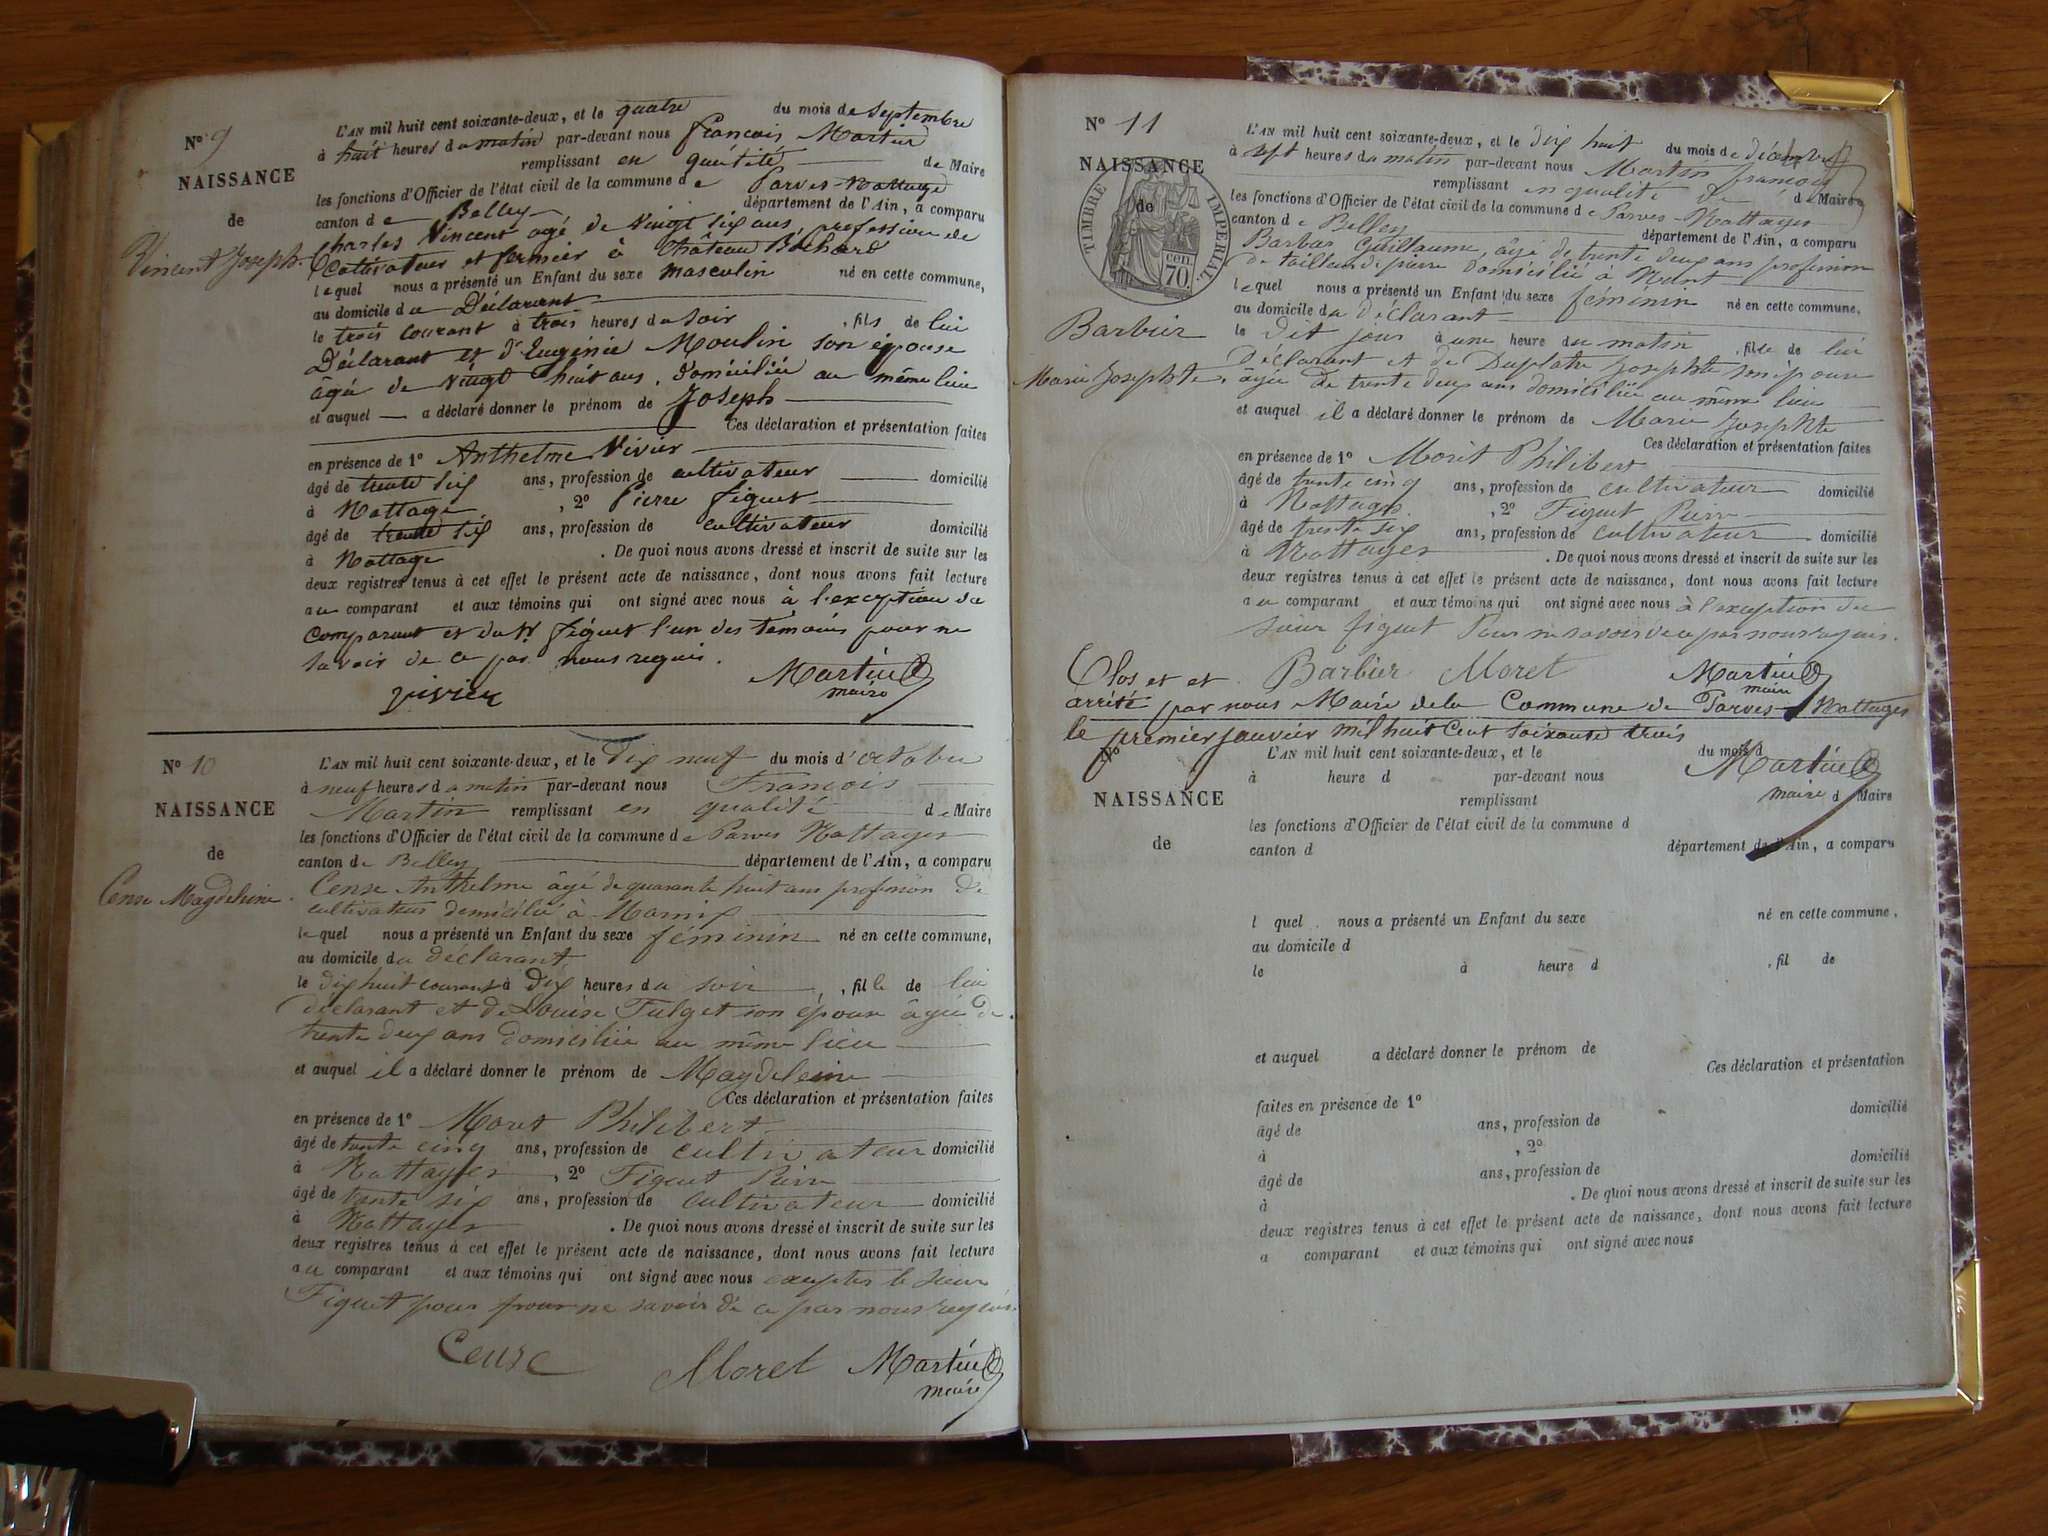 N° 9
NAISSANCE
de
Vincent Joseph.
L'AN mil huit cent soixante-deux, et le quatre du mois de Septembre
à huit heures du matin par-devant nous françois Martin
remplissant en quétité de Maire
les fonctions d'Officier de l'état civil de la commune de Parves-Nattage
canton de Belley département de l'Ain, a comparu
Charles Vincent agé de Vingt six ans, profession de
Cultivateur et fermier à Château Bochard
lequel nous a présenté un Enfant du sexe masculin né en cette commune,
au domicile du Déclarant
le trois courant à trois heures du soir , fils de lui
Déclarant et d'Eugénie Moulin son épouse
âgé de vingt huit ans, domiciliée au même lieu
et auquel a déclaré donner le prénom de Joseph
Ces déclaration et présentation faites
en présence de 1° Anthelme Vivier
âgé de trente six ans, profession de cultivateur domicilié
à Nattage , 2° Pierre figuet
âgé de trente six ans, profession de cultivateur domicilié
à Nattage . De quoi nous avons dressé et inscrit de suite sur les
deux registres tenus à cet effet le présent acte de naissance, dont nous avons fait lecture
au comparant et aux témoins qui ont signé avec nous à l'exception du
comparant et du Sr figuet l'un des témoins pour ne
savoir de ce par nous requis.
vivier
Martin
maire
N° 10
NAISSANCE
de
Cense Magdeleine.
L'AN mil huit cent soixante-deux, et le dix neuf du mois d'octobre
à neuf heures du matin par-devant nous François
Martin remplissant en qualité de Maire
les fonctions d'Officier de l'état civil de la commune de Parves Nattages
canton de Belley département de l'Ain, a comparu
Cense Anthelme âgé de quarante huit ans profession de
cultivateur domicilié à
lequel nous a présenté un Enfant du sexe féminin né en cette commune,
au domicile du déclarant
le dix huit courant à dix heures du soir , fille de lui
déclarant et de Louise Fulget son épouse âgée de
trente deux ans domiciliée au même lieu
et auquel il a déclaré donner le prénom de Magdeleine
Ces déclaration et présentation faites
en présence de 1° Moret Philibert
âgé de trente cinq ans, profession de cultivateur domicilié
à Nattages , 2° Figuet Pierre
âgé de trente six ans, profession de cultivateur domicilié
à Nattages . De quoi nous avons dressé et inscrit de suite sur les
deux registres tenus à cet effet le présent acte de naissance, dont nous avons fait lecture
au comparant et aux témoins qui ont signé avec nous exceptés le sieur
Figuet pour pour ne savoir de ce par nous requis.
Cense Moret Martin
maire
N° 11
NAISSANCE
de
TIMBRE IMPERIAL.
CEN.
70
Barbier
Marie Josephte.
L'AN mil huit cent soixante-deux, et le dix huit du mois de décembre
à sept heures du matin par-devant nous Martin françois
remplissant en qualité de de Maire
les fonctions d'Officier de l'état civil de la commune de Parves-Nattages
canton de Belley département de l'Ain, a comparu
Barbier Guillaume, âgé de trente deux ans profession
de tailleur de pierre domicilié à
lequel nous a présenté un Enfant du sexe féminin né en cette commune,
au domicile du déclarant
le dit jour à une heure du matin , fille de lui
déclarant et de Duplatre Josephte son épouse
âgée de trente deux ans domiciliée au même lieu
et auquel il a déclaré donner le prénom de Marie Josephte
Ces déclaration et présentation faites
en présence de 1° Moret Philibert
âgé de trente cinq ans, profession de cultivateur domicilié
à Nattages. , 2° Figuet Pierre
âgé de trente six ans, profession de cultivateur domicilié
à Nattages . De quoi nous avons dressé et inscrit de suite sur les
deux registres tenus à cet effet le présent acte de naissance, dont nous avons fait lecture
au comparant et aux témoins qui ont signé avec nous à l'exception du
sieur figuet Pour ne savoir de ce par nous requis.
Barbier Moret Martin
maire
Clos et et
arrêté par nous Maire de la Commune de Parves-Nattages
le premier janvier mil huit Cent Soixante trois
Martin
maire
N°
NAISSANCE
de
L'AN mil huit cent soixante-deux, et le du mois d
à heure d par-devant nous
remplissant d Maire
les fonctions d'Officier de l'état civil de la commune d
canton d département de l'Ain, a comparu
l quel nous a présenté un Enfant du sexe né en cette commune,
au domicile d
le à heure d , fil de
et auquel a déclaré donner le prénom de
Ces déclaration et présentation
faites en présence de 1°
âgé de ans, profession de domicilié
à , 2°
âgé de ans, profession de domicilié
à . De quoi nous avons dressé et inscrit de suite sur les
deux registres tenus à cet effet le présent acte de naissance, dont nous avons fait lecture
a comparant et aux témoins qui ont signé avec nous